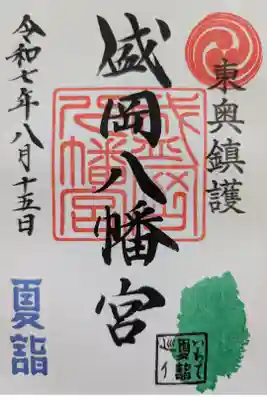 東奥鎮護
盛岡八幡宮
盛岡八幡宮
令和七年八月十五日
夏詣
いわて
夏詣
巡り